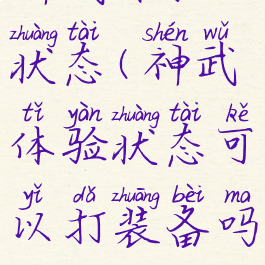 zhuàng tài shén wǔ
状态(神武
tǐ yàn zhuàng tài kě
体验状态可
yǐ dǎ zhuāng bèi ma
以打装备吗